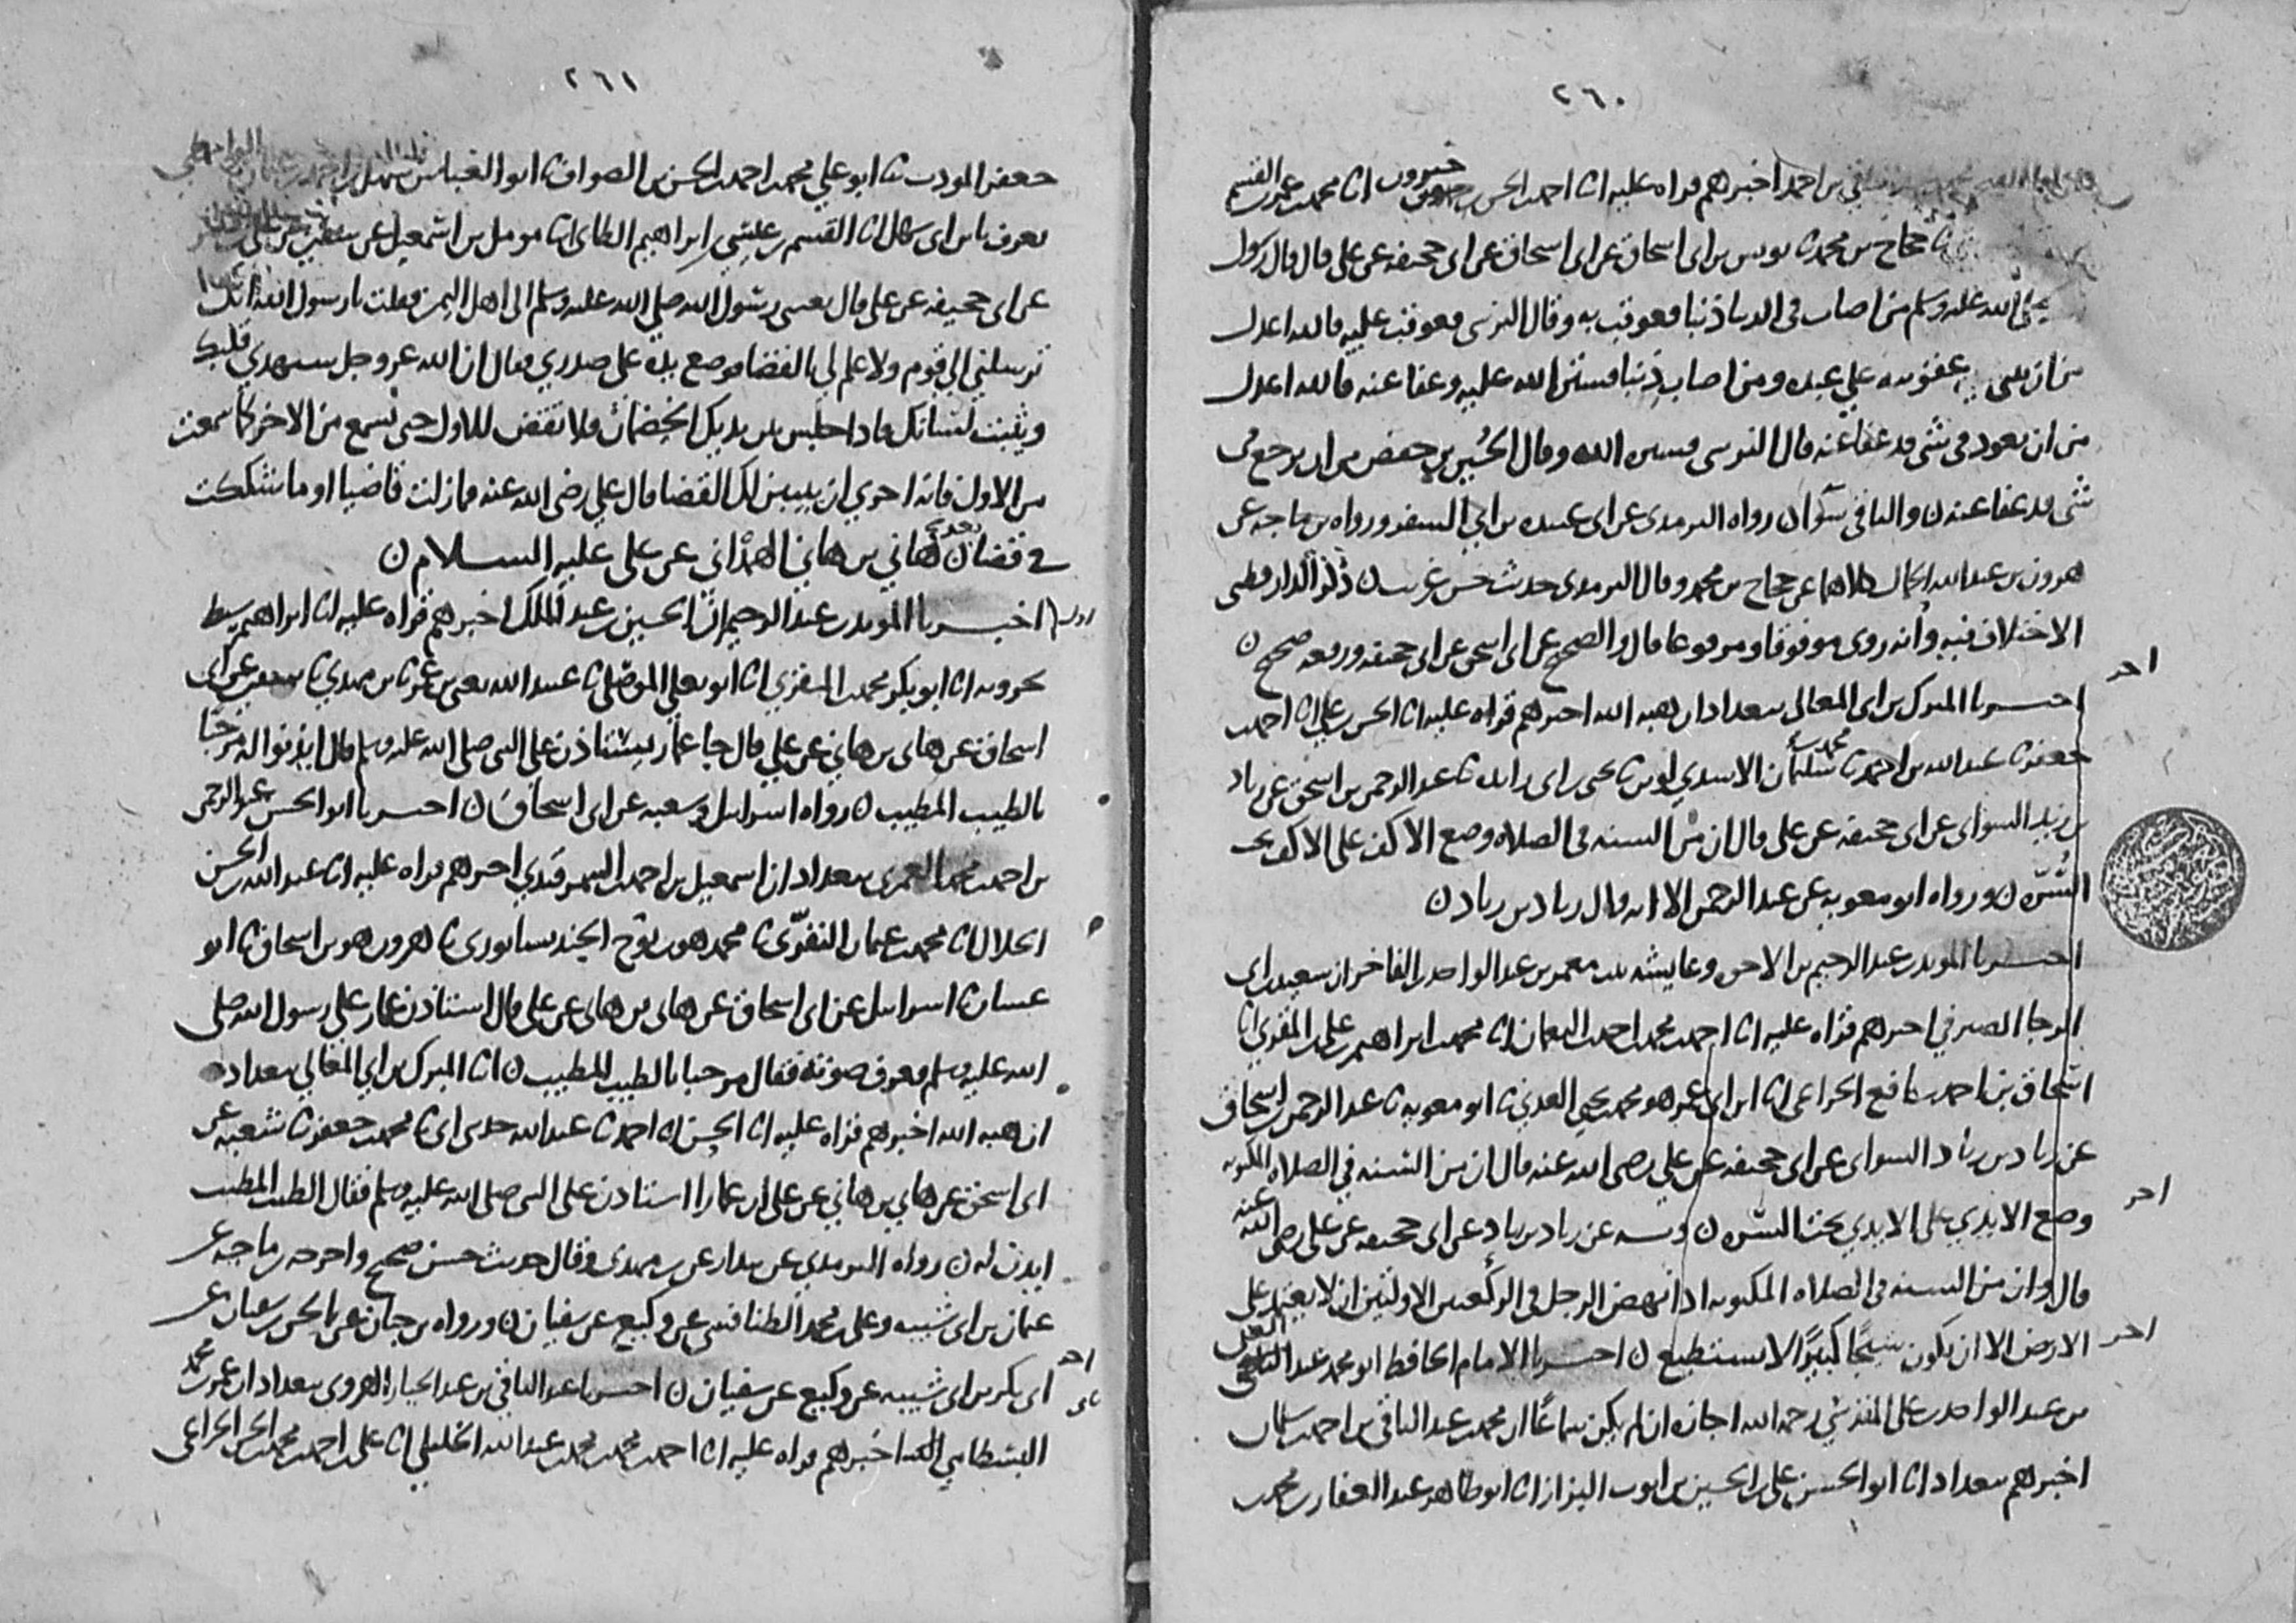 ٢٦٠
بن احمد اخبرهم قراه عليه انا احمد بن الحسن بن خيرون انا محمد بن عمر بن القسم
ثنا حجاج بن محمد ثنا يونس بن ابى اسحاق عن ابى اسحاق عن ابى جحيفه عن على قال قال رسول
صلى الله عليه وسلم من اصاب في الدنيا ذنبا فعوقب به وقال النرسى فعوقب عليه فالله اعدل
من ان يثنى عقوبته علي عبده ومن اصاب ذنبا فستر الله عليه وعفا عنه فالله اعدل
من ان يعود في شى قد عفا عنه قال النرسى فستره الله وقال الحسين بن حفص من ان يرجع في
شى قد عفا عنه ن والباقى سوآ ن رواه الترمدى عن ابى عبيده بن ابي السفر ورواه بن ماجه عن
هرون بن عبد الله الحمال كلاهما عن حجاج بن محمد وقال الترمدى حديث حسن غريب ن ذكر الدارقطنى
الاختلاف فيه وانه روى موقوفا ومرفوعا قال والصحيح عن ابى اسحق عن ابى جحيفه ورفعه صحيح ن
اخبرنا المبرك بن ابى المعالى ببغداد ان هبه الله اخبرهم قراه عليه انا الحسن بن علي انا احمد بن
جعفر ثنا عبد الله بن احمد ثنا محمد بن سليمان الاسدي لوين ثنا يحيى بن ابى زايده ثنا عبد الرحمن بن اسحق عن زياد
بن زيد السواى عن ابى جحيفه عن على قال ان من السنه فى الصلاه وضع الاكف على الاكف تحت
السُّرّه ن ورواه ابو معويه عن عبد الرحمن الا انه قال زياد بن زياد ن
اخبرنا المويد بن عبد الرحيم بن الاخوه وعايشه بنت معمر بن عبد الواحد بن الفاخر ان سعيد بن ابى
الرجا الصيرفي اخبرهم قراه عليه انا احمد بن محمد بن احمد بن النعمان انا محمد بن ابراهيم بن على بن المقرى انا
اسحاق بن احمد بن نافع الخزاعى انا ابن ابى عمر هو محمد بن يحيى العدني ثنا ابو معويه ثنا عبد الرحمن بن اسحاق
عن زياد بن زياد السواى عن ابى جحيفه عن علي رضى الله عنه قال ان من السنه في الصلاه المكتوبه
وضع الايدي على الايدي تحت السّره ن وبه عن زياد بن زياد عن ابى جحيفه عن على رضى الله عنه
قال وان من السنه فى الصلاه المكتوبه اذا نهض الرجل فى الركعتين الاوليين ان لا يعتمد على
الارض الا ان يكون شيخًا كبيرًا لا يستطيع ن اخبرنا الامام الحافظ ابو محمد عبد الغنى
بن عبد الواحد بن على المقدسي رحمه الله اجازه ان لم يكن سماعًا ان محمد بن عبد الباقى بن احمد بن سلمان
اخبرهم ببغداد انا ابو الحسن على بن الحسين بن ايوب البزاز انا ابو طاهر عبد الغفار بن محمد بن
اخر
اخر
اخر
٢٦١
جعفر المودب ثنا ابو علي محمد بن احمد بن الحسن بن الصواف ثنا ابو العباس سهل بن احمد بن عثمان الواسطي
يعرف بابن ابى سهل انا القسم بن عيسى بن ابراهيم الطاى ثنا مومل بن اسمعيل عن سفين
عن ابى جحيفه عن على قال بعثنى رسول الله صلى الله عليه وسلم الى اهل اليمن فقلت يا رسول الله انك
ترسلني الي قوم ولا علم لي بالقضا فوضع يده على صدري فقال ان الله عز وجل سيهدي قلبك
ويثبت لسانك فاذا جلس بين يديك الخصمان فلا تقض للاول حتى تسمع من الاخر كما سمعت
من الاول فانه احري ان يتبين لك القضا قال علي رضى الله عنه فما زلت قاضيا او ما شككت
في قضا بعد ن هاني بن هانئ الهمْداني عن على عليه السلام ن
اخبرنا المويد بن عبد الرحيم ان الحسين بن عبد الملك اخبرهم قراه عليه انا ابراهيم سبط
بحرويه انا ابو بكر محمد بن المقري انا ابو يعلي الموصلى ثنا عبيد الله يعنى بن عمر ثنا بن مهدي ثنا سفين عن ابى
اسحاق عن هانى بن هاني عن علي قال جا عمار يستاذن على النبى صلى الله عليه وسلم قال ايذنوا له مرحبا
بالطيب المطيب ن رواه اسرايل وشعبه عن ابى اسحاق ن اخبرنا ابو الحسن عبد الرحمن
بن احمد بن محمد العمري ببغداد ان اسمعيل بن احمد بن السمرقندي اخبرهم قراه عليه انا عبد الله بن الحسن
الخلال انا محمد بن عثمان النفّري ثنا محمد هو بن نوح الجنديسابوري ثنا هرون هو بن اسحاق ثنا ابو
غسان ثنا اسرايل عن ابى اسحاق عن هانى بن هانى عن على قال استاذن عمار على رسول الله صلى
الله عليه وسلم فعرف صوته فقال مرحبا بالطيب المطيب ن انا المبرك بن ابي المعالي ببغداد
ان هبه الله اخبرهم قراه عليه انا الحسن انا احمد ثنا عبد الله حدثنى ابى ثنا محمد بن جعفر ثنا شعبه عن
ابى اسحق عن هاني بن هاني عن على ان عمارا استاذن على النبى صلى الله عليه وسلم فقال الطيب المطيب
ايذن له ن رواه الترمدي عن بندار عن بن مهدى وقال حديث حسن صحيح واخرجه بن ماجه عن
عثمان بن ابى شيبه وعلى بن محمد الطنافسى عن وكيع عن سفيان ن ورواه بن حبان عن الحسن بن سفيان عن
ابى بكر بن ابى شيبه عن وكيع عن سفيان ن اخبرنا عبد الباقي بن عبد الجبار الهروى ببغداد ان عمر بن محمد
البسطامي اخبرهم قراه عليه انا احمد بن محمد بن محمد بن عبد الله الخليلي انا على بن احمد بن محمد بن الحسن الخزاعى
اخر